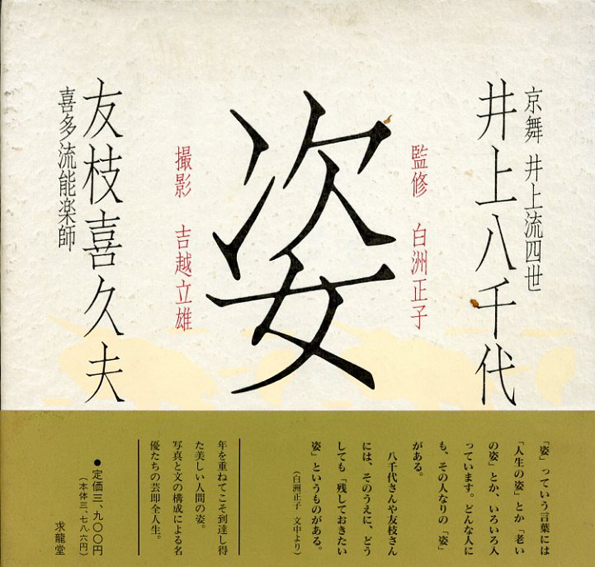 京舞 井上流四世
井上八千代
監修 白洲正子
姿
撮影 吉越立雄
友枝喜久夫
喜多流能楽師
「姿」っていう言葉には
「人生の姿」とか「老い
の姿」とか、いろいろ入
っています。どんな人に
も、その人なりの「姿」
がある。
八千代さんや友枝さん
には、そのうえに、どう
しても「残しておきたい
姿」というものがある。
(白洲正子 文中より)
年を重ねてこそ到達し得
た美しい人間の姿。
写真と文の構成による名
優たちの芸即全人生。
●定価三、九〇〇円
(本体三、七八六円)
求龍堂